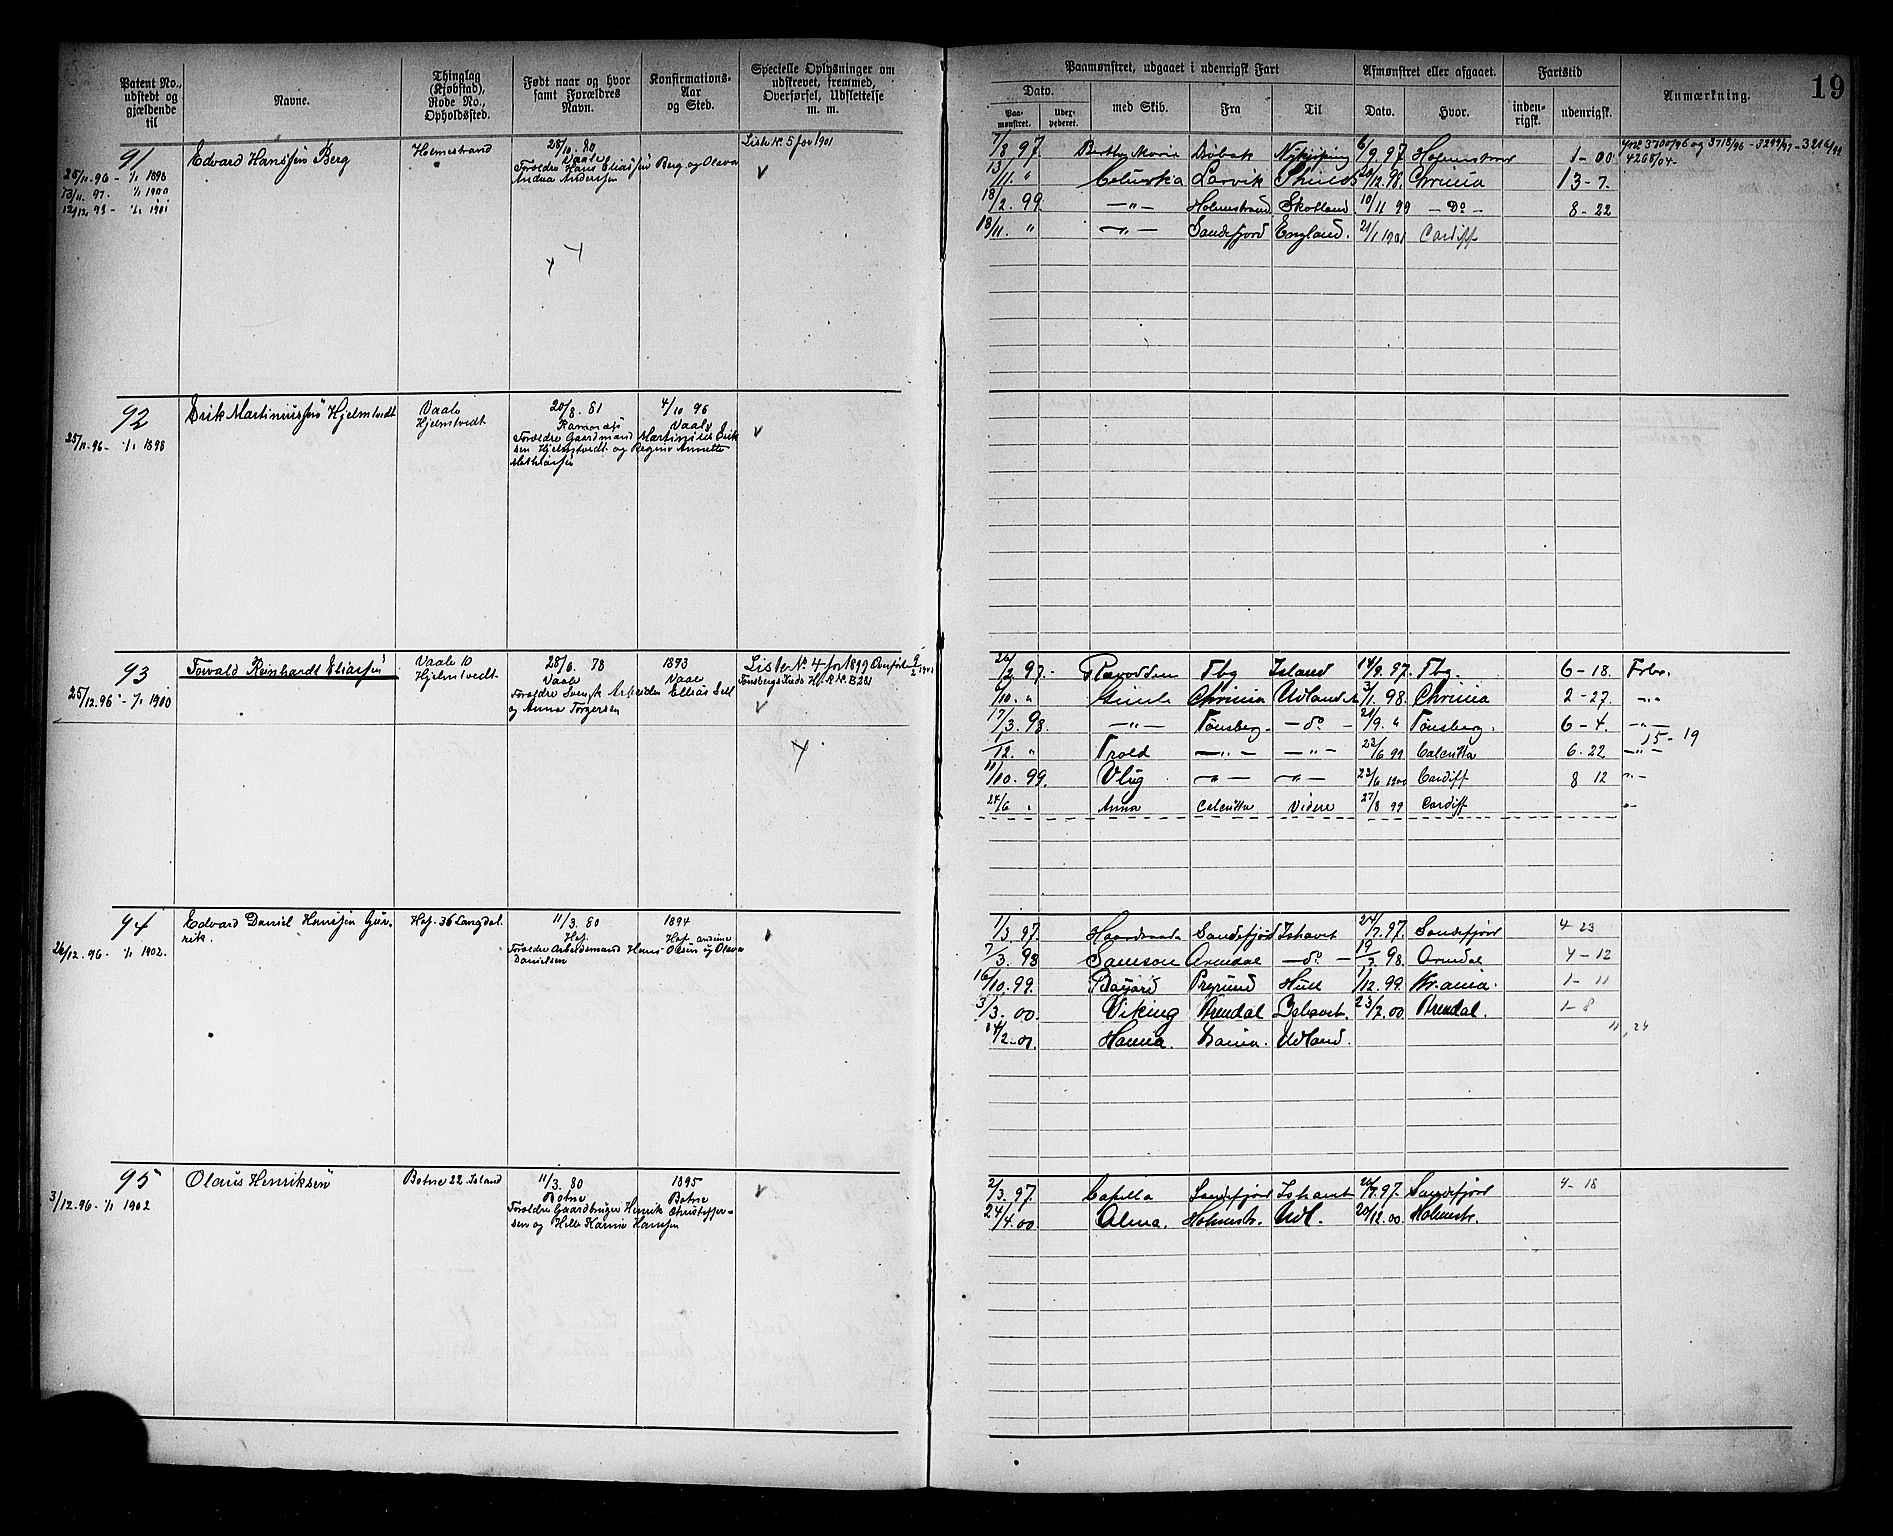 Patent No., udstedt og gjældende til
Navne.
Thinglag (Kjøbstad), Rode No., Opholdssted.
Født naar og hvor samt Forældres Navn.
Konfirmations-Aar og Sted.
Specielle Oplysninger om udskrevet, fremmed, Overførsel, Udslettelse m. m.
Paamønstret, udgaaet i udenrigsk Fart
Afmønstret eller afgaaet.
Fartstid
Anmærkning.
19
Dato.
Paamønstret.
med Skib.
Fra
Til
Dato.
Hvor.
indenrigsk.
udenrigsk.
91
25/11.96 - 1/1 1898
13/11. 97. 1/1 1900
12/12. 98 - 1/1 1901
Edvard Hanssen Berg
28/10. 80
Vaale
Forældre Hans Eliassen Berg og Olava
Andrea Andersen
Liste No. 5 for 1901
7/8 97. Berthe Marie Drøbak Nykjøping 6/9.97 1-00
13/11. " Larvik Shields 12.98. Chrinia 13-7.
18/2. 99. -"- Holmestrand Skotland 10/11 99 - Do - 8-22
18/11. " -"- Sandefjord England. 21/1 1901 Cardiff
92
25/11.96 - 1/1 1898
Erik Martiniussen Hjelmtvedt
Vaale
Hjelmtvedt
20/8. 81
Ramnæs
Forældre Gaardmand Martinius Erik-
sen Hjelmtvedt og Regine Annette
Mathiassen
4/10 96
Vaale
93
25/12.96 - 1/1 1900
Torvald Reinhardt Eliassen
Vaale 10
Hjelmtvedt
28/6. 78
Vaale
og Anna Torgersen
1893
Vaale
Liste No. 4 for 1899
Tbg Island 14/9.97. Tbg. 6-18.
9/10. " Chrinia Udlandet 3/1.98. Chrinia 2-27. -"-
17/3.98. -"- Tønsberg. - do - 21/9. " Tønsberg. 6-4. -"-
15-19
1/12. " Trold -"- -"- 23/6 99 Calcutta 6. 22 -"-
11/10. 99. Vlug -"- -"- 23/6 1900 Cardiff 8 12 "-
24/6 " Anna Calcutta Videre 27/8 99 Cardiff "-
94
26/12.96 - 1/1 1902.
Edvard Daniel Hanssen
Hof. 36 Langdal.
11/3. 80
Hof
Forældre Arbeidsmand Hans Olsen og Olava
Danielsen
1894
Hof
1/3.97. Sandefjord Ishavet 24/7.97. Sandefjord 4-23
7/3. 98 Samson Arendal - do - 98. Arendal 4-12
16/10.99. Bayard Hull 1/12.99. Kr.ania. 1-11
3/3. 00. Viking Arendal Ishavet. 23/7.00 Arendal. 1-8
Udland.
11, 24
95
3/12.96 - 1/1 1902
Olaus Henriksen
Botne 22. Island
11/3. 80
Botne
Forældre Gaardbruger Henrik Christoffer-
sen og Helle Karine Hansen
1895
Botne
2/3.97. Capella Sandefjord Ishavet 97. Sandefjord 4-18
24/4.00 Alma. Holmestr. Udl. 20/12.00. Holmestr.